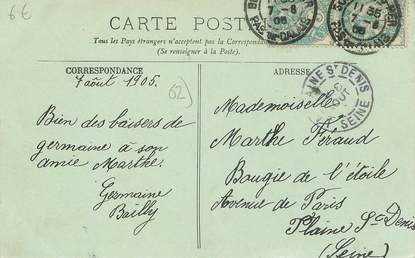 6€
CARTE POSTALE
Tous les Pays étrangers n'acceptent pas la Correspondance
(Se renseigner à la Poste).
CORRESPONDANCE
7 août 1905.
62
Bien des baisers de
germaine à son
amie Marthe.
Germaine
Bailly
ADRESSE
Mademoiselle
Marthe Féraud
Bougie de l'étoile
Avenue de Paris
Plaine St Denis
(Seine)
PAS DE CALAIS
ST DENIS
SEINE